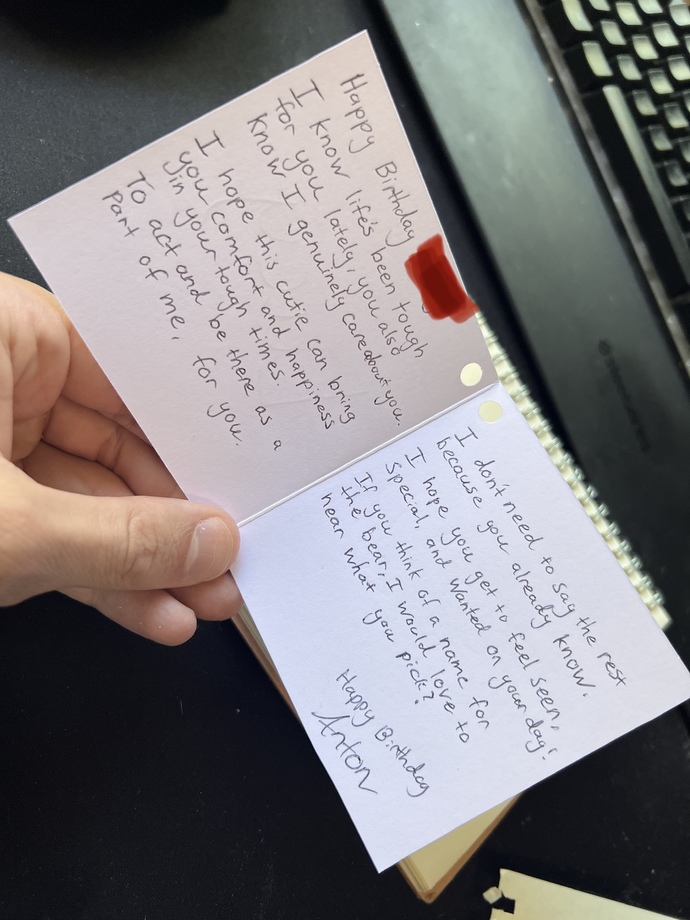 Happy Birthday
I know life's been tough
for you lately, you also
know I genuinely care about you.
I hope this cutie can bring
you comfort and happiness
in your tough times.
To act and be there as a
part of me, for you.
I don't need to say the rest
because you already know.
I hope you get to feel seen,
special, and wanted on your day!
If you think of a name for
the bear, I would love to
hear what you pick?
Happy Birthday
Anton